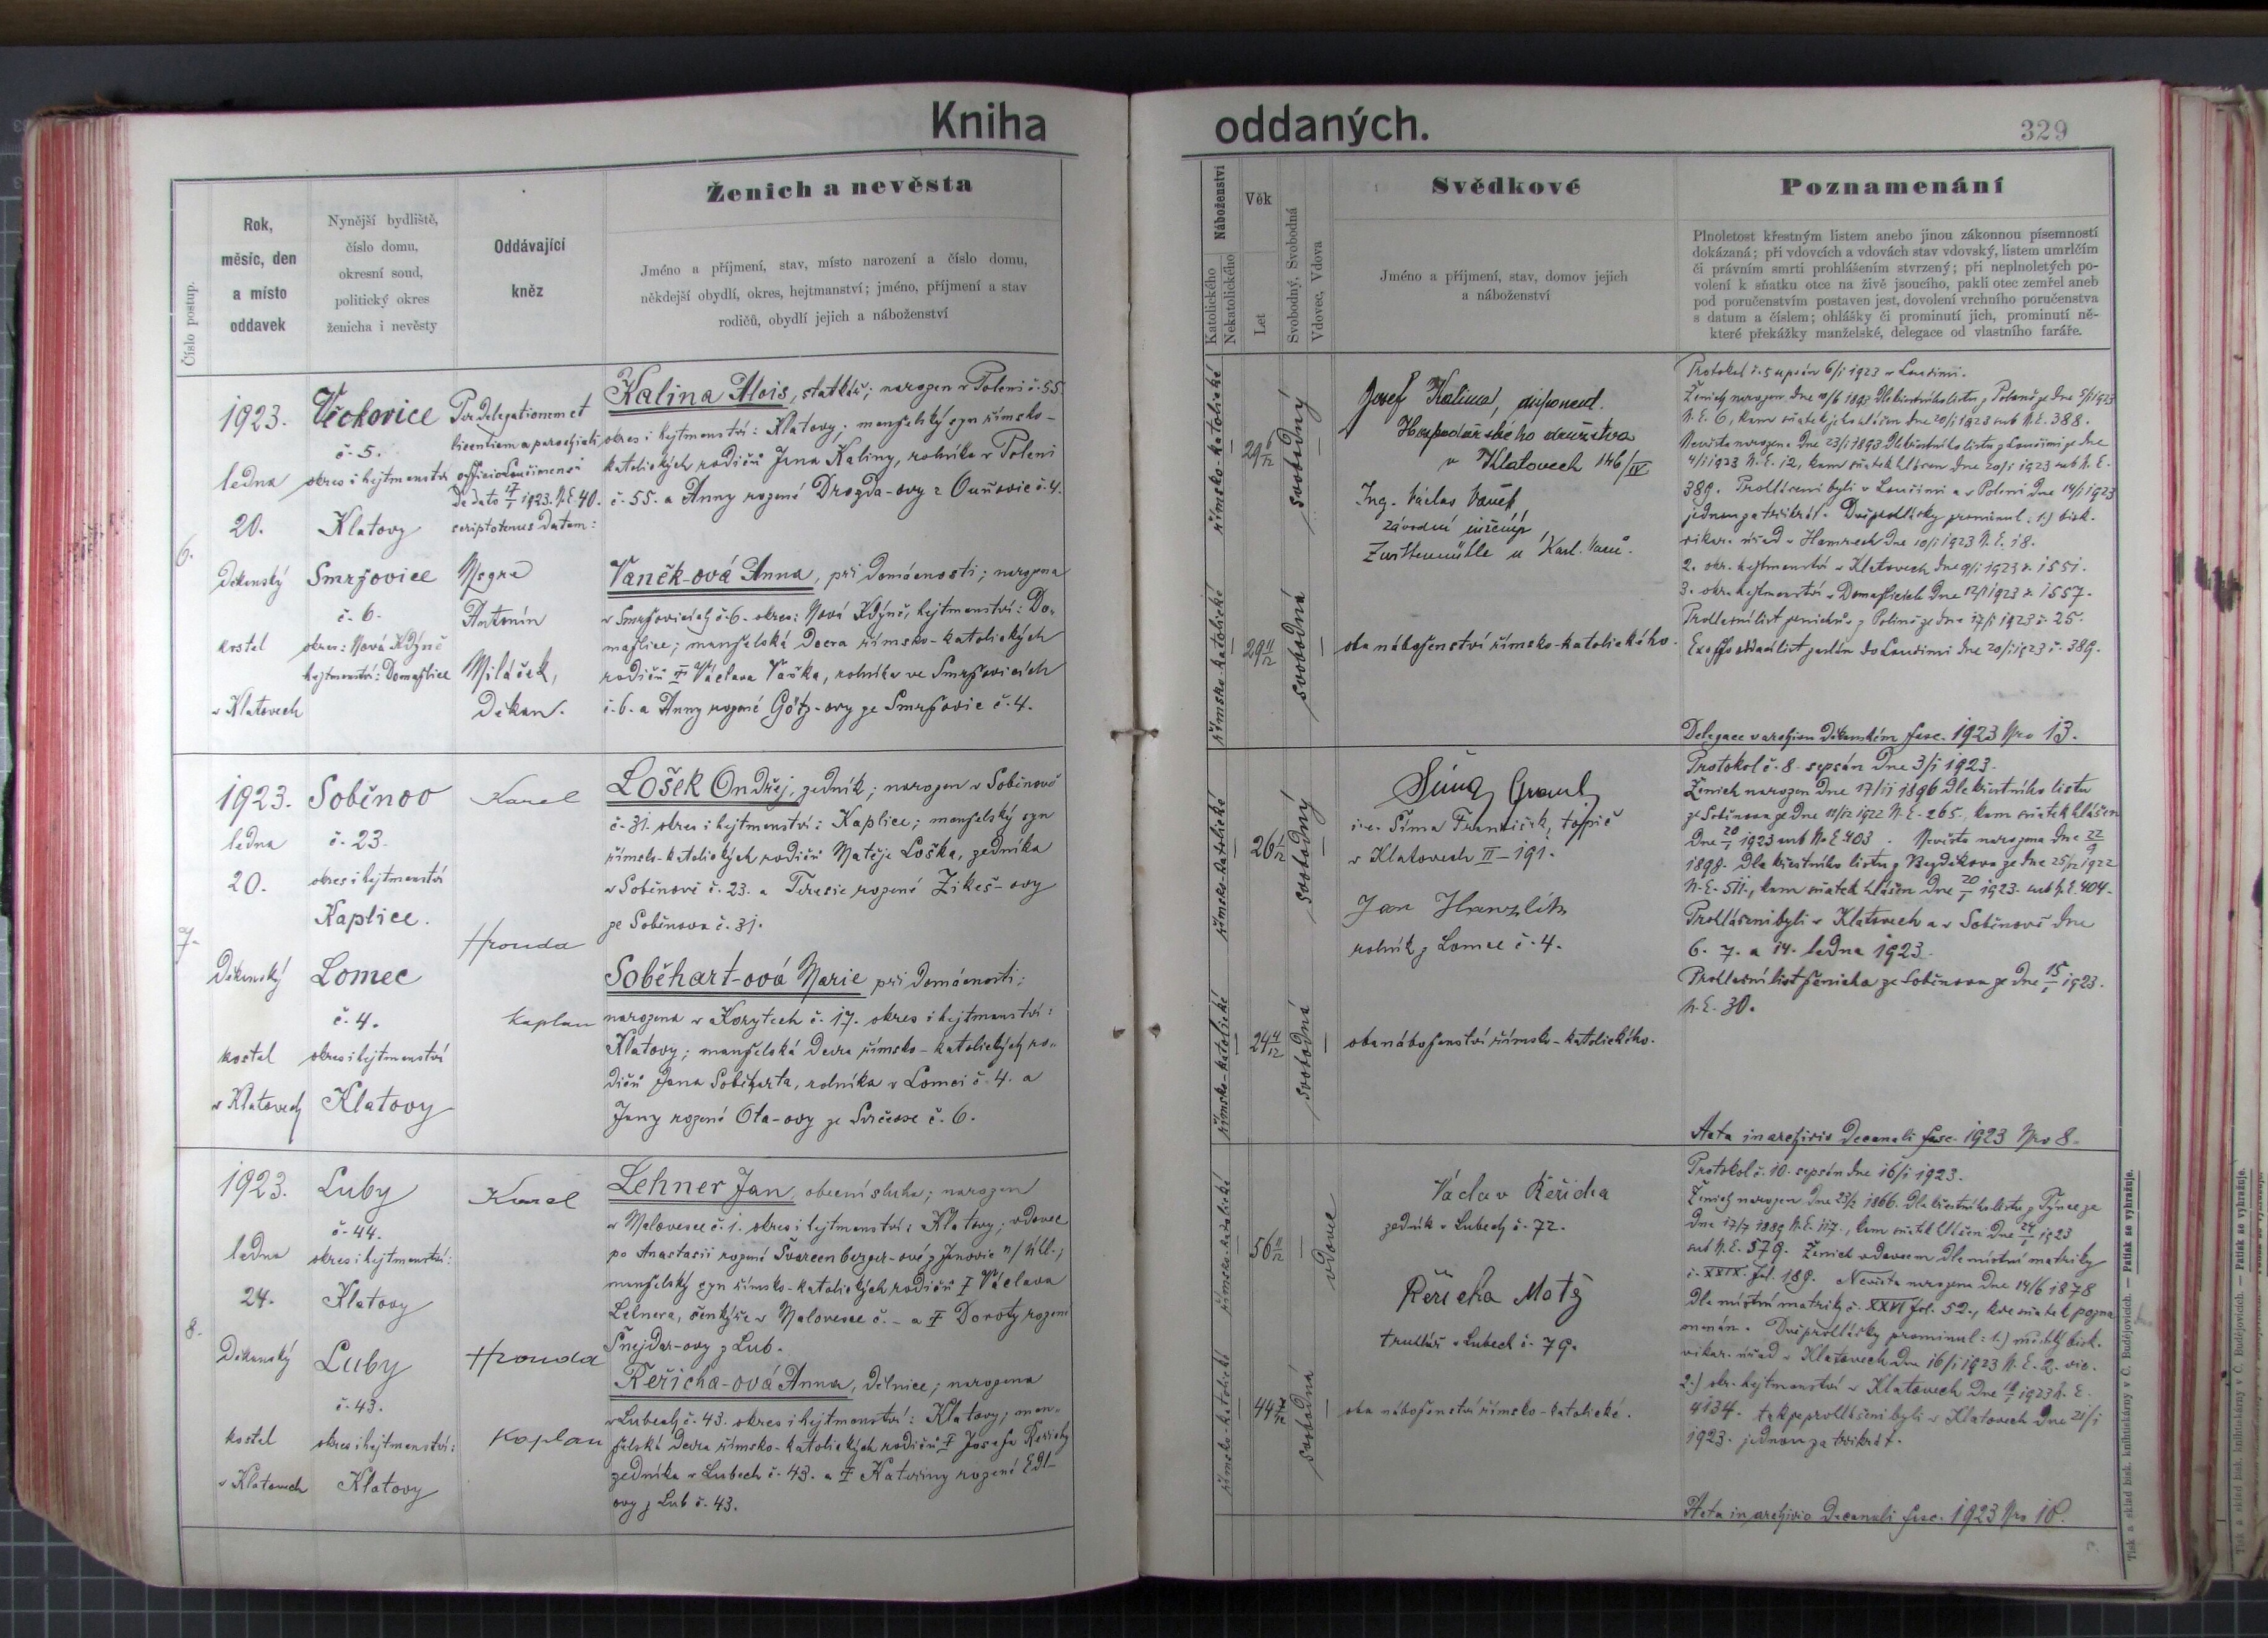 Kniha
oddaných.
329
Číslo postup.
Rok,
měsíc, den
a místo
oddavek
Nynější bydliště,
číslo domu,
okresní soud,
politický okres
ženicha i nevěsty
Oddávající
kněz
Ženich a nevěsta
Jméno a příjmení, stav, místo narození a číslo domu,
někdejší obydlí, okres, hejtmanství; jméno, příjmení a stav
rodičů, obydlí jejich a náboženství
Náboženství
Katolického
Nekatolického
Věk
Let
Svobodný, Svobodná
Vdovec, Vdova
Svědkové
Jméno a příjmení, stav, domov jejich
a náboženství
Poznamenání
Plnoletost křestným listem anebo jinou zákonnou písemností
dokázaná; při vdovcích a vdovách stav vdovský, listem umrlčím
či právním smrti prohlášením stvrzený; při neplnoletých po-
volení k sňatku otce na živě jsoucího, pakli otec zemřel aneb
pod poručenstvím postaven jest, dovolení vrchního poručenstva
s datum a číslem; ohlášky či prominutí jich, prominutí ně-
které překážky manželské, delegace od vlastního faráře.
6.
1923.
ledna
20.
Děkanský
kostel
v Klatovech
č. 5.
okres i hejtmanství
Klatovy
Smržovice
č. 6.
okres: Nová Kdýně
hejtmanství: Domažlice
Per delegationem et
licentiam a parochiali
officio Loučimensi
de dato 17/I 1923. N.E. 40.
scriptotenus datam:
Msgre
Antonín
Miláček,
děkan.
Kalina Alois, statkář; narozen v Poleni č. 55
okres i hejtmanství: Klatovy; manželský syn římsko-
katolických rodičů Jana Kaliny, rolníka v Poleni
č. 55. a Anny rozené Drozda-ovy z č. 4.
Vaněk-ová Anna, při domácnosti; narozena
v Smržovicích č. 6. okres: Nová Kdýně, hejtmanství: Do-
mažlice; manželská dcera římsko-katolických
rodičů † Václava Vaňka, rolníka ve Smržovicích
č. 6. a Anny rozené Götz-ovy ze Smržovic č. 4.
římsko-katolické
29 6/12
svobodný
římsko-katolické
29 11/12
svobodná
Josef Kalina, disponent.
Hospodářského družstva
v Klatovech 146/IV
Ing. Václav Vaněk
závodní inženýr
u Karl. Varů.
oba náboženství římsko-katolického.
Protokol č. 5 sepsán 6/I 1923 v Loučimi.
N.E. 6, kam sňatek jeho hlášen dne 20/I 1923 sub N.E. 388.
Nevěsta narozena dne 23/I 1893 dle křestního listu z Loučimi ze dne
4/I 1923 N.E. 12, kam sňatek hlášen dne 20/I 1923 sub N.E.
389. Prohlášeni byli v Loučimi a v Poleni dne 14/I 1923
jednou za třikrát. Dvě prohlášky prominul: 1.) bisk.
vikar. úřad v Hamrech dne 10/I 1923 N.E. 18.
2. okr. hejtmanství v Klatovech dne 9/I 1923 č. 1551.
3. okr. hejtmanství v Domažlicích dne 12/I 1923 č. 1557.
Prohlašní list ženichův z Poleně ze dne 17/I 1923 č. 25.
Ex offo oddací list zaslán do Loučimi dne 20/I 1923 č. 389.
Delegace v archivu děkanském fasc. 1923 Nro 13.
7.
1923.
ledna
20.
Děkanský
kostel
v Klatovech
Soběnov
č. 23.
okres i hejtmanství
Kaplice.
Lomec
č. 4.
okres i hejtmanství
Klatovy
Karel
Hrouda
kaplan
Lošek Ondřej, zedník; narozen v Soběnově
č. 31. okres i hejtmanství: Kaplice; manželský syn
římsko-katolických rodičů Matěje Loška, zedníka
v Soběnově č. 23. a Teresie rozené Zikeš-ovy
ze Soběnova č. 31.
Soběhart-ová Marie při domácnosti;
narozena v Korytech č. 17. okres i hejtmanství:
Klatovy; manželská dcera římsko-katolických ro-
dičů Jana Soběharta, rolníka v Lomci č. 4. a
Jany rozené Ota-ovy ze Svrčovce č. 6.
římsko-katolické
26 1/12
svobodný
římsko-katolické
24 4/12
svobodná
i.e. Šíma František, topič
v Klatovech II-191.
Jan Hanzlík
rolník z Lomce č. 4.
oba náboženství římsko-katolického.
Protokol č. 8. sepsán dne 3/I 1923.
Ženich narozen dne 17/11 1896 dle křestního listu
ze Soběnova ze dne 11/12 1922 N.E. 265, kam sňatek hlášen
dne 20/I 1923 sub N.E. 403. Nevěsta narozena dne 22/9
1898. dle křestního listu z Bezděkova ze dne 25/12 1922
N.E. 511., kam sňatek hlášen dne 20/I 1923. sub N.E. 404.
Prohlášeni byli v Klatovech a v Soběnově dne
6. 7. a 14. ledna 1923.
Prohlašní list ženicha ze Soběnova ze dne 15/I 1923.
N.E. 30.
Acta in archivio decanali fasc. 1923 Nro 8.
8.
1923.
ledna
24.
Děkanský
kostel
v Klatovech
Luby
č. 44.
okres i hejtmanství:
Klatovy
Luby
č. 43.
okres i hejtmanství:
Klatovy
Karel
Hrouda
kaplan
Lehner Jan, obecní sluha; narozen
v Malovesce č. 1. okres i hejtmanství: Klatovy; vdovec
po Anastasii rozené Švarcenberger-ové z Janovic n/Úhl.,
manželský syn římsko-katolických rodičů † Václava
Lehnera, šenkýře v Malovesce č. – a † Doroty rozené
Šnejdar-ovy z Lub.
Řeřicha-ová Anna, dělnice; narozena
v Lubech č. 43. okres i hejtmanství: Klatovy; man-
želská dcera římsko-katolických rodičů † Josefa Řeřichy
zedníka v Lubech č. 43. a † Kateřiny rozené Edl-
ovy z Lub č. 43.
římsko-katolické
56 11/12
vdovec
římsko-katolické
44 7/12
svobodná
Václav Řeřicha
zedník v Lubech č. 72.
Řeřicha Matěj
truhlář v Lubech č. 79.
oba náboženství římsko-katolické.
Protokol č. 10. sepsán dne 16/I 1923.
Ženich narozen dne 23/2 1866. dle křestního listu z Týnce ze
dne 17/7 1889 N.E. 117., kam sňatek hlášen dne 24/I 1923
sub N.E. 579. Ženich vdovcem dle místní matriky
č. XXIX. fol. 189. Nevěsta narozena dne 14/6 1878
dle místní matriky č. XXVI fol. 52., kde sňatek pozna-
menán. Dvě prohlášky prominul: 1.) místní bisk.
vikar. úřad v Klatovech dne 16/I 1923 N.E. 2. vic.
2.) okr. hejtmanství v Klatovech dne 1923 N.E.
4134. takže prohlášeni byli v Klatovech dne 21/I
1923. jednou za třikrát.
Acta in archivio decanali fasc. 1923 Nro 10.
Tisk a sklad bisk. knihtiskárny v Č. Budějovicích. — Patisk se vyhražuje.